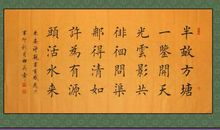 半畝方塘
一鑒開天
光雲影共
徘徊問渠
那得清如
許為有源
頭活水来